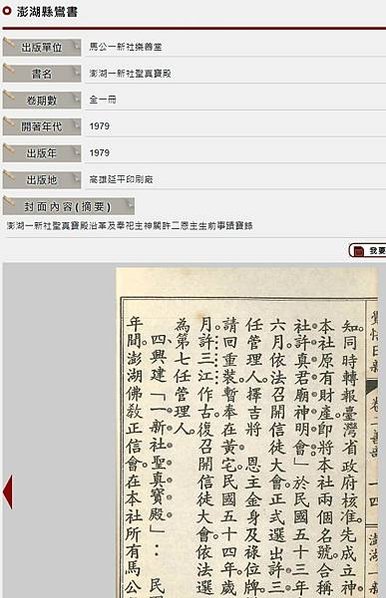 澎湖縣鸞書
出版單位 馬公一新社樂善堂
書名 澎湖一新社聖真寶殿
卷期數 全一冊
開著年代 1979
出版年 1979
出版地 高雄延平印刷廠
封面內容(摘要)
澎湖一新社聖真寶殿沿革及奉祀主神關許二恩主生前事蹟寶錄
我要
覺悟日新 卷二 一四 澎湖一新
知同時轉報臺灣省政府核准先成立神
本社原有財產即將本社兩個名號合稱
社許真君廟神明會」於民國五十三年
六月依法召開信徒大會正式選出許三
任管理人擇吉將 恩主金身及祿位牌
請回重裝暫奉在黃宅民國五十四年歲
月許三江作古復召開信徒大會依法選
為第七任管理人。
四興建「一新社聖真寶殿」:民
年間澎湖佛教正信會在本社所有馬公